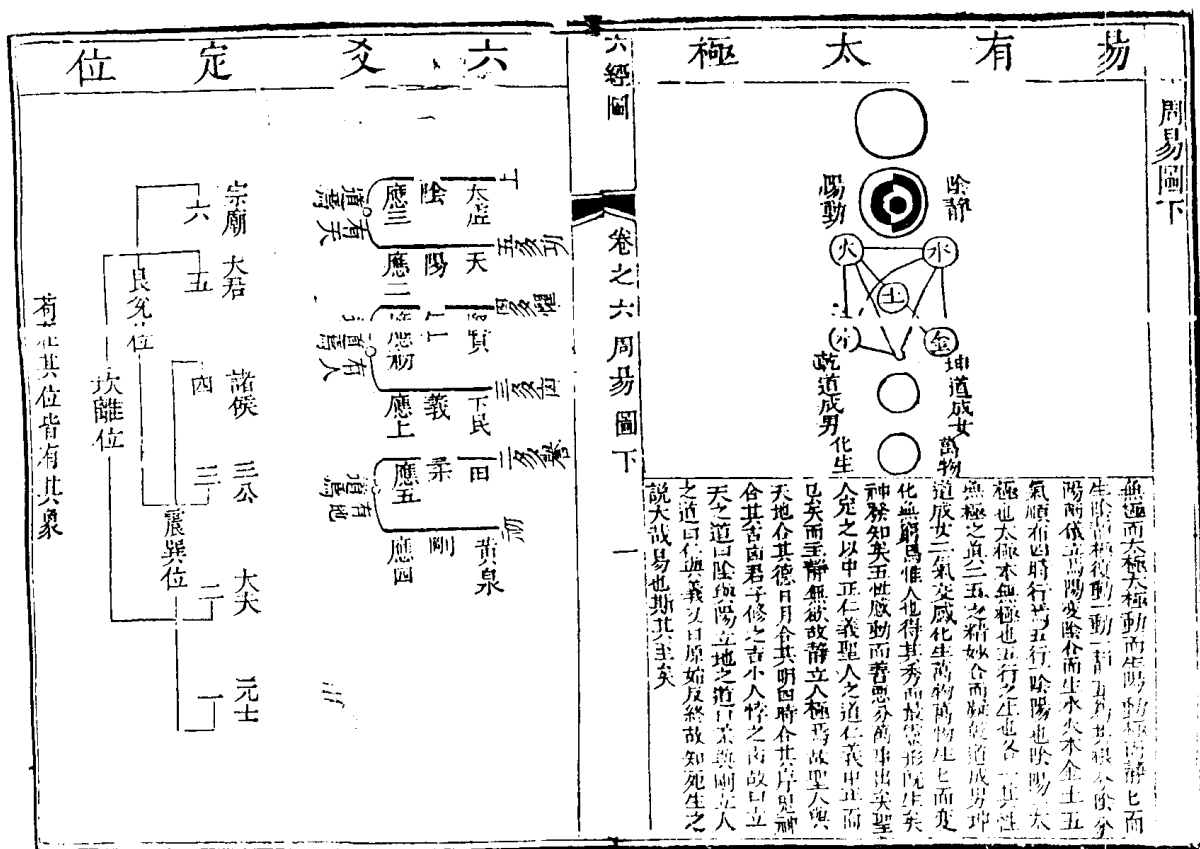 周易圖下
易有太極
陰靜
陽動
水
火
土
金
木
坤道成女
乾道成男
萬物
化生
無極而太極太極動而生陽動極而靜ヒ而
生陰靜極復動一動一靜互爲其根分陰分
陽兩儀立焉陽變陰合而生水火木金土五
氣順布四時行焉五行一陰陽也陰陽一太
極也太極本無極也五行之生也各一其性
無極之眞二五之精妙合而凝乾道成男坤
道成女二氣交感化生萬物萬物生ヒ而變
化無窮焉惟人也得其秀而最靈形旣生矣
神發知矣五性感動而善惡分萬事出矣聖
人定之以中正仁義聖人之道仁義中正而
已矣而主靜無欲故靜立人極焉故聖人與
天地合其德日月合其明四時合其序鬼神
合其吉凶君子修之吉小人悖之凶故曰立
天之道曰陰與陽立地之道曰柔與剛立人
之道曰仁與義又曰原始反終故知死生之
說大哉易也斯其至矣
六經圖
卷之六周易圖下
一
六爻定位
上
太虛
陰
應三
有天道焉
五多功
天
陽
應二
四多懼
賢
仁
應初
有人道焉
三多凶
下民
義
應上
二多譽
田
柔
應五
有地道焉
初
黃泉
剛
應四
宗廟
六
大君
五
諸侯
四
三公
三
大夫
二
元士
一
艮兌位
坎離位
震巽位
苟在其位皆有其象